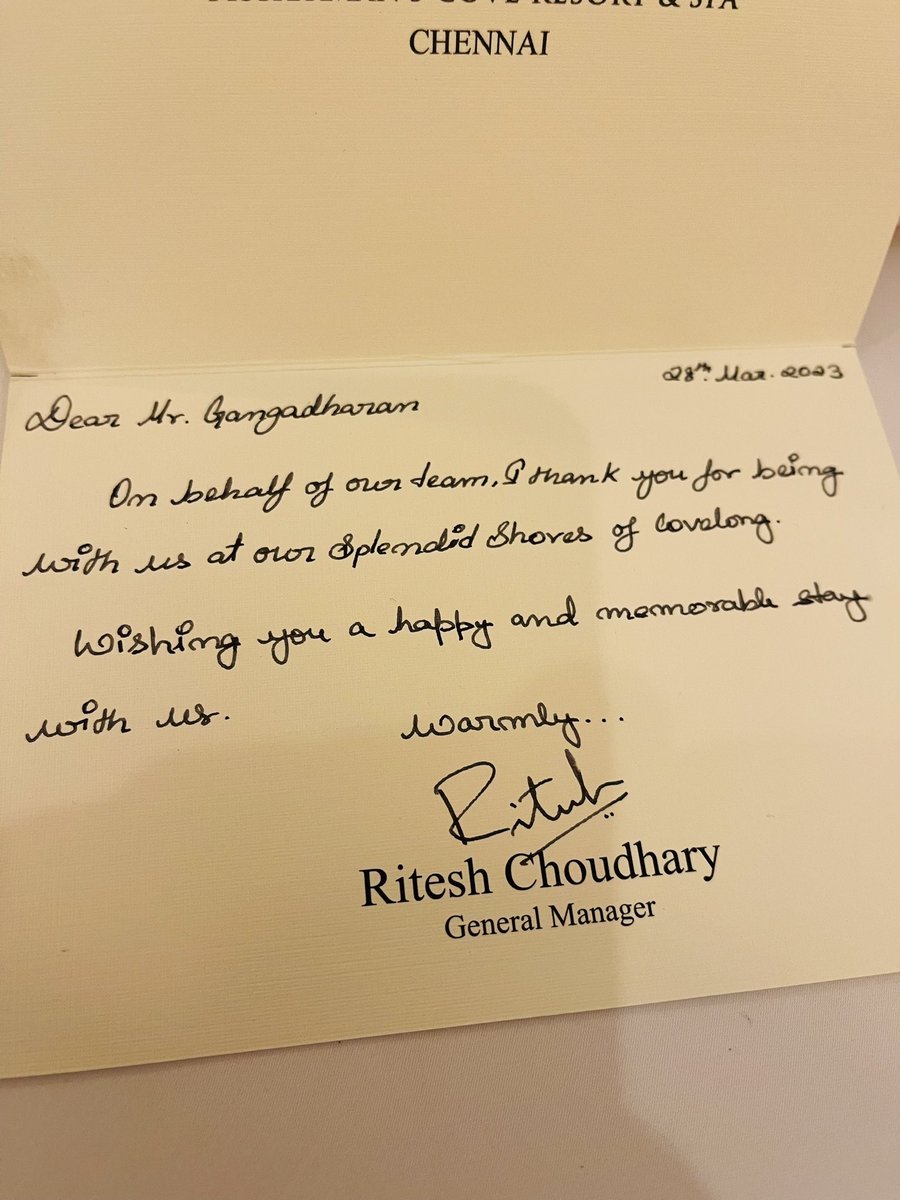 COVE RESORT & SPA
CHENNAI
28th. Mar. 2023
Dear Mr. Gangadharan
On behalf of our team, I thank you for being
with us at our Splendid Shores of Covelong.
Wishing you a happy and memorable stay
with us.
Warmly...
Ritesh
Ritesh Choudhary
General Manager